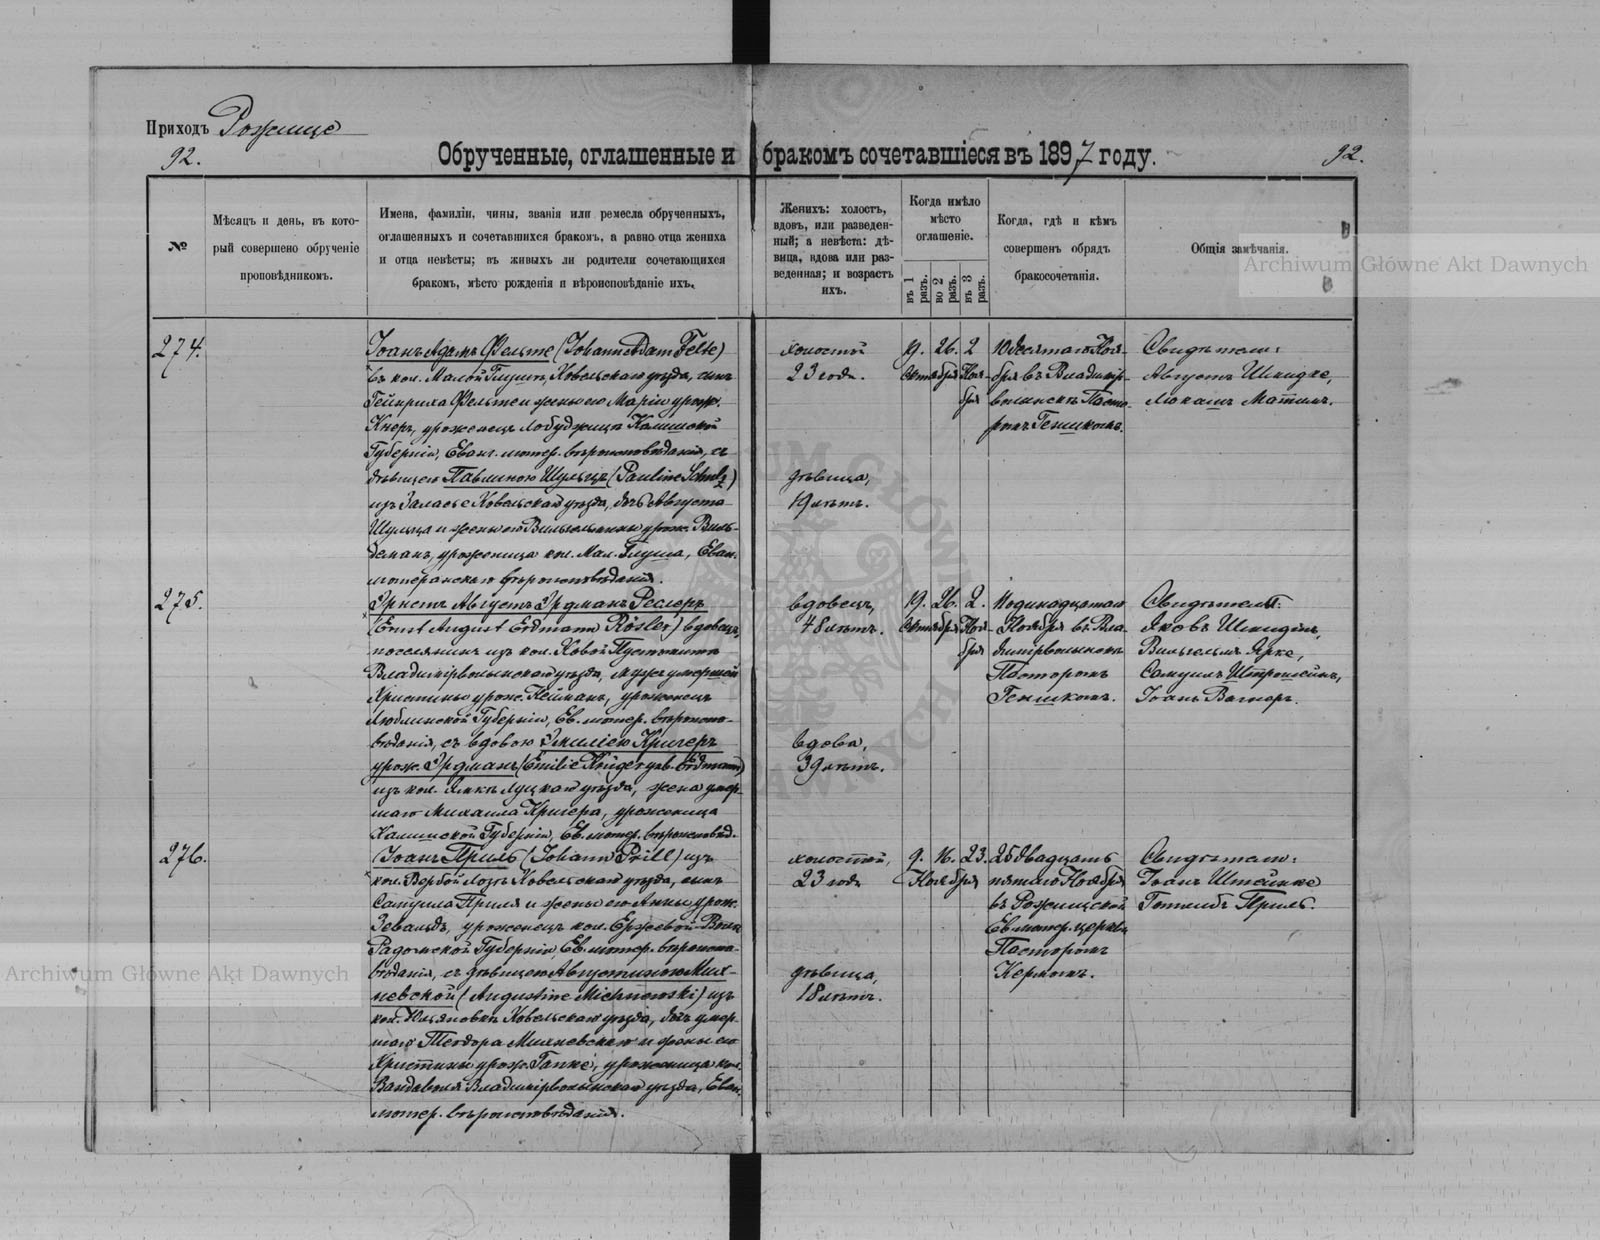 Приходъ Рожище
92.
Обрученные, оглашенные и бракомъ сочетавшіеся въ 1897 году.
92.
№
Мѣсяцъ и день, въ кото-
рый совершено обрученіе
проповѣдникомъ.
Имена, фамиліи, чины, званія или ремесла обрученныхъ,
оглашенныхъ и сочетавшихся бракомъ, а равно отца жениха
и отца невѣсты; въ живыхъ ли родители сочетающихся
бракомъ, мѣсто рожденія и вѣроисповѣданіе ихъ.
Женихъ: холостъ,
вдовъ, или разведен-
ный; а невѣста: дѣ-
вица, вдова или раз-
веденная; и возрастъ
ихъ.
Когда имѣло
мѣсто
оглашеніе.
въ 1 разъ.
во 2 разъ.
въ 3 разъ.
Когда, гдѣ и кѣмъ
совершенъ обрядъ
бракосочетанія.
Общія замѣчанія.
Archiwum Główne Akt Dawnych
274.
Іоанъ Адамъ Фельте (Johann Adam Felte)
въ кол. Малой Глушѣ, Ковельскаго уѣзда, сынъ
Гейнриха Фельте и жены его Маріи урож.
Кнеръ, уроженецъ Лобуджицъ Калишской
Губерніи, Еван. лютер. вѣроисповѣданія, съ
дѣвицею Павлиною Шульцъ (Pauline Schulz)
изъ Заласье Ковельскаго уѣзда, дочь Августа
Шульца и жены его Вильгельмины урож. Виль-
деманъ, уроженица кол. Мал. Глуша, Еван.
лютеранскаго вѣроисповѣданія.
холостой
23 года.
дѣвица,
19 лѣтъ.
19. 26. 2
Октября Ноя-
бря
10 десятаго Ноя-
бря въ Владимір-
волынскѣ Пасто-
ромъ Геншкомъ.
Свидѣтели:
Августъ Шмидке,
Люкаш Матим.
275.
Эрнстъ Августъ Эрдманъ Реслеръ
(Ernst August Erdmann Rösler) вдовецъ,
поселянинъ изъ кол. Новой Пустомытъ
Владимірволынскаго уѣзда, мужъ умершей
Христины урож. Нейманъ, уроженецъ
Люблинской Губерніи, Ев. лютер. вѣроиспо-
вѣданія, съ вдовою Эмиліею Кригеръ
урож. Эрдманъ (Emilie Krüger geb. Erdmann)
изъ кол. Луцкаго уѣзда, жена умер-
шаго Михаила Кригера, уроженица
Калишской Губерніи, Ев. лютер. вѣроисповѣд.
вдовецъ,
48 лѣтъ.
вдова,
39 лѣтъ.
19. 26. 2.
Октября Ноя-
бря
11 одинадцатаго
Ноября въ Вла-
димірволынскѣ
Пасторомъ
Геншкомъ.
Свидѣтели:
Яковъ
Вильгельмъ Ярке,
Самуилъ
Іоанъ Вагнеръ.
276.
Іоанъ Приль (Johann Prill) изъ
кол. Вербой Лозѣ Ковельскаго уѣзда, сынъ
Самуила Приля и жены его Анны урож.
Зевальдъ, уроженецъ кол. Ержевой-Воли
Радомской Губерніи, Ев. лютер. вѣроиспо-
вѣданія, съ дѣвицею Августиною Мих-
невской (Augustine Michnowski) изъ
кол. Юльяновкѣ Ковельскаго уѣзда, дочь умер-
шаго Теодора Михневскаго и жены его
Христины урож. Гапке, уроженица кол.
Вандаволя Владимірволынскаго уѣзда, Еван.
лютер. вѣроисповѣданія.
холостой,
23 года
дѣвица,
18 лѣтъ.
9. 16. 23.
Ноября
25 двадцать
пятаго Ноября
въ Рожищской
Ев. лютер. церкви
Пасторомъ
Кермомъ.
Свидѣтели:
Іоанъ Штейнке
Готлибъ Приль.
Archiwum Główne Akt Dawnych